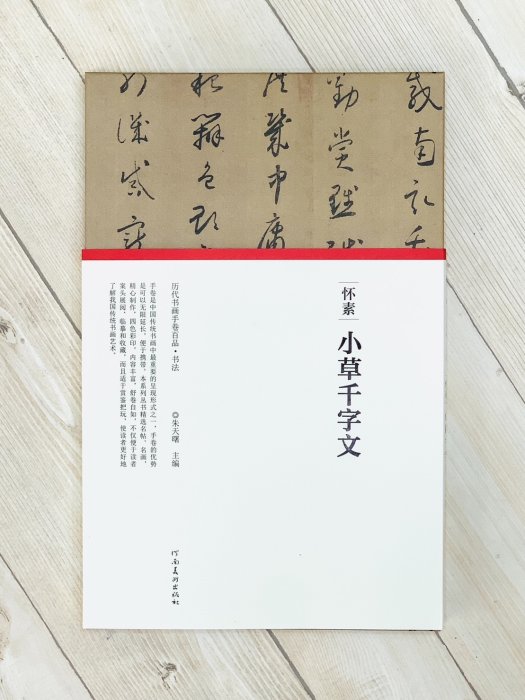 載南畝
勸賞黜
幾中庸
貌辨色貽
躬譏誡寵
怀素
小草千字文
历代书画手卷百品·书法
◎朱天曙 主编
手卷是中国传统书画中最重要的呈现形式之一，手卷的优势
是可以无限延长，便于携带。本系列丛书精选名帖、名画，
精心制作，四色彩印，内容丰富，舒卷自如，不仅便于读者
案头展阅、临摹和收藏，而且适于赏鉴把玩，使读者更好地
了解我国传统书画艺术。
河南美术出版社